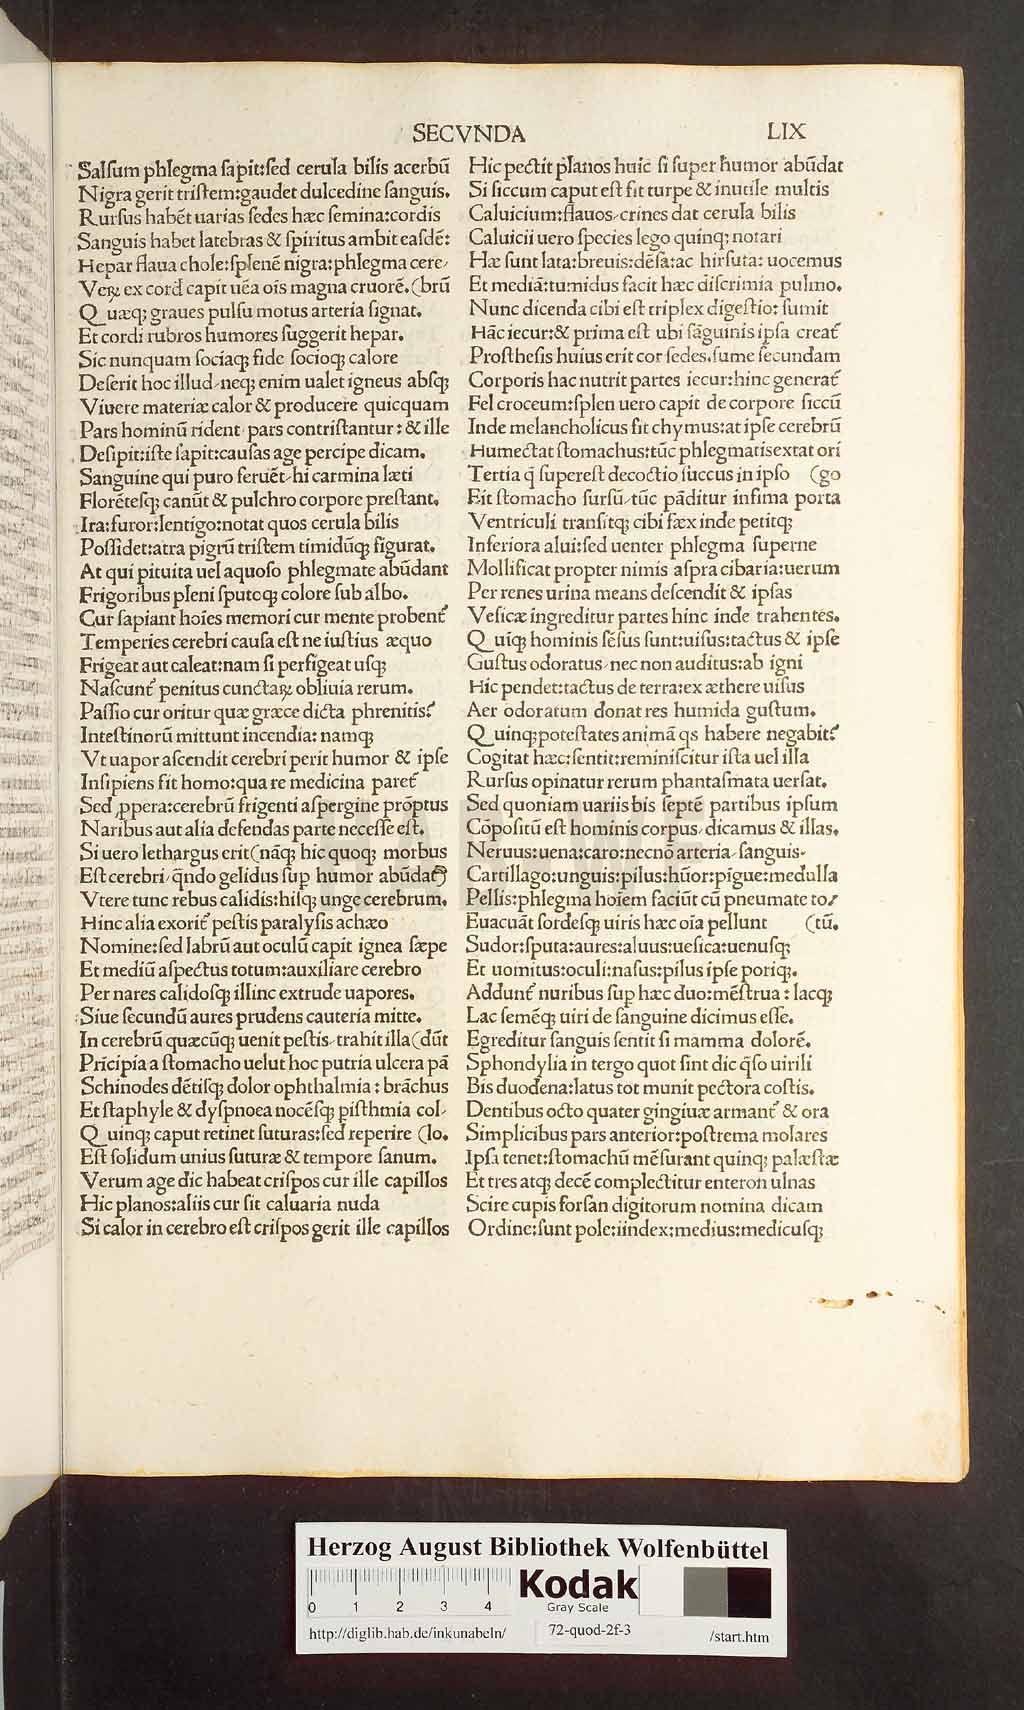 SECVNDA
LIX
Salsum phlegma sapit:sed cerula bilis acerbũ
Nigra gerit tristem:gaudet dulcedine sanguis.
Rursus habẽt uarias sedes hæc semina:cordis
Sanguis habet latebras & spiritus ambit easdẽ:
Hepar flaua chole:splenẽ nigra:phlegma cere/
Veꝝ ex cord capit uẽa oĩs magna cruorẽ.(brũ
Quæqꝫ graues pulsu motus arteria signat.
Et cordi rubros humores suggerit hepar.
Sic nunquam sociaqꝫ fide socioqꝫ calore
Deserit hoc illud/neqꝫ enim ualet igneus absqꝫ
Viuere materiæ calor & producere quicquam
Pars hominũ rident pars contristantur:& ille
Desipit:iste sapit:causas age percipe dicam.
Sanguine qui puro feruẽt/hi carmina læti
Florẽtesqꝫ canũt & pulchro corpore prestant.
Ira:furor:lentigo:notat quos cerula bilis
Possidet:atra pigrũ tristem timidũqꝫ figurat.
At qui pituita uel aquoso phlegmate abũdant
Frigoribus pleni sputoqꝫ colore sub albo.
Cur sapiant hoĩes memori cur mente probent᷑
Temperies cerebri causa est ne iustius æquo
Frigeat aut caleat:nam si perfigeat usqꝫ
Nascunt᷑ penitus cunctaꝝ obliuia rerum.
Passio cur oritur quæ græce dicta phrenitis?
Intestinorũ mittunt incendia: namqꝫ
Vt uapor ascendit cerebri perit humor & ipse
Insipiens fit homo:qua re medicina paret᷑
Sed ꝓpera:cerebrũ frigenti aspergine prõptus
Naribus aut alia defendas parte necesse est.
Si uero lethargus erit(nãqꝫ hic quoqꝫ morbus
Est cerebri/q̃ndo gelidus sup humor abũdat)
Vtere tunc rebus calidis:hisqꝫ unge cerebrum.
Hinc alia exorit᷑ pestis paralysis achæo
Nomine:sed labrũ aut oculũ capit ignea sæpe
Et mediũ aspectus totum:auxiliare cerebro
Per nares calidosqꝫ illinc extrude uapores.
Siue secundũ aures prudens cauteria mitte.
In cerebrũ quæcũqꝫ uenit pestis/trahit illa(dũt
Prĩcipia a stomacho uelut hoc putria ulcera pã
Schinodes dẽtisqꝫ dolor ophthalmia: brãchus
Et staphyle & dyspnoea nocẽsqꝫ pisthmia col/
Quinqꝫ caput retinet suturas:sed reperire (lo.
Est solidum unius suturæ & tempore sanum.
Verum age dic habeat crispos cur ille capillos
Hic planos:aliis cur sit caluaria nuda
Si calor in cerebro est crispos gerit ille capillos
Hic pectit planos huic si super humor abũdat
Si siccum caput est fit turpe & inutile multis
Caluicium:flauos/crines dat cerula bilis
Caluicii uero species lego quinqꝫ notari
Hæ sunt lata:breuis:dẽsa:ac hirsuta: uocemus
Et mediã:tumidus facit hæc discrimia pulmo.
Nunc dicenda cibi est triplex digestio: sumit
Hãc iecur:& prima est ubi sãguinis ipsa creat᷑
Prosthesis huius erit cor sedes.sume secundam
Corporis hac nutrit partes iecur:hinc generat᷑
Fel croceum:splen uero capit de corpore siccũ
Inde melancholicus fit chymus:at ipse cerebrũ
Humectat stomachus:tũc phlegmatisextat ori
Tertia q̃ superest decoctio succus in ipso (go
Fit stomacho sursũ/tũc pãditur infima porta
Ventriculi transitqꝫ cibi fæx inde petitqꝫ
Inferiora alui:sed uenter phlegma superne
Mollificat propter nimis aspra cibaria:uerum
Per renes urina means descendit & ipsas
Vesicæ ingreditur partes hinc inde trahentes.
Quĩqꝫ hominis sẽsus sunt:uisus:tactus & ipse
Gustus odoratus/nec non auditus:ab igni
Hic pendet:tactus de terra:ex æthere uisus
Aer odoratum donat res humida gustum.
Quinqꝫ potestates animã qs habere negabit?
Cogitat hæc:sentit:reminiscitur ista uel illa
Rursus opinatur rerum phantasmata uersat.
Sed quoniam uariis bis septẽ partibus ipsum
Cõpositũ est hominis corpus/dicamus & illas.
Neruus:uena:caro:necnõ arteria/sanguis.
Cartillago:unguis:pilus:hũor:pĩgue:medulla
Pellis:phlegma hoĩem faciũt cũ pneumate to/
Euacuãt sordesqꝫ uiris hæc oĩa pellunt (tũ.
Sudor:sputa:aures:aluus:uesica:uenusqꝫ
Et uomitus:oculi:nasus:pilus ipse poriqꝫ.
Addunt᷑ nuribus sup hæc duo:mẽstrua: lacqꝫ
Lac semẽqꝫ uiri de sanguine dicimus esse.
Egreditur sanguis sentit si mamma dolorẽ.
Sphondylia in tergo quot sint dic q̃so uirili
Bis duodena:latus tot munit pectora costis.
Dentibus octo quater gingiuæ armant᷑ & ora
Simplicibus pars anterior:postrema molares
Ipsa tenet:stomachũ mẽsurant quinqꝫ palæstæ
Et tres atqꝫ decẽ complectitur enteron ulnas
Scire cupis forsan digitorum nomina dicam
Ordine:sunt pole:iindex:medius:medicusqꝫ
Herzog August Bibliothek Wolfenbüttel
0 1 2 3 4
Kodak
Gray Scale
http://diglib.hab.de/inkunabeln/
72-quod-2f-3
/start.htm